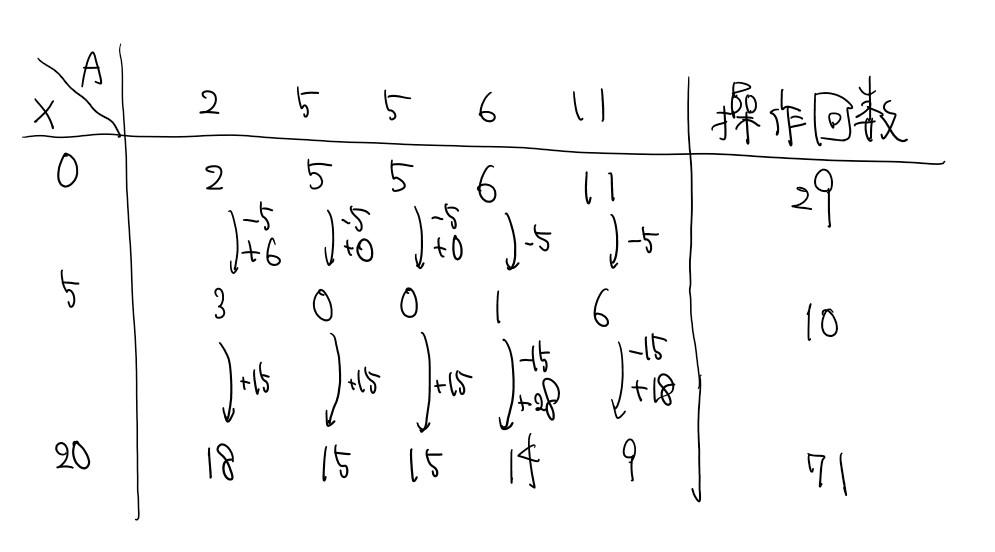 A
X 2 5 5 6 11 操作回数
0 2 5 5 6 11 29
-5 -5 -5 -5 -5
+6 +0 +0
5 3 0 0 1 6 10
+15 +15 +15 -15 -15
+28 +18
20 18 15 15 14 9 71